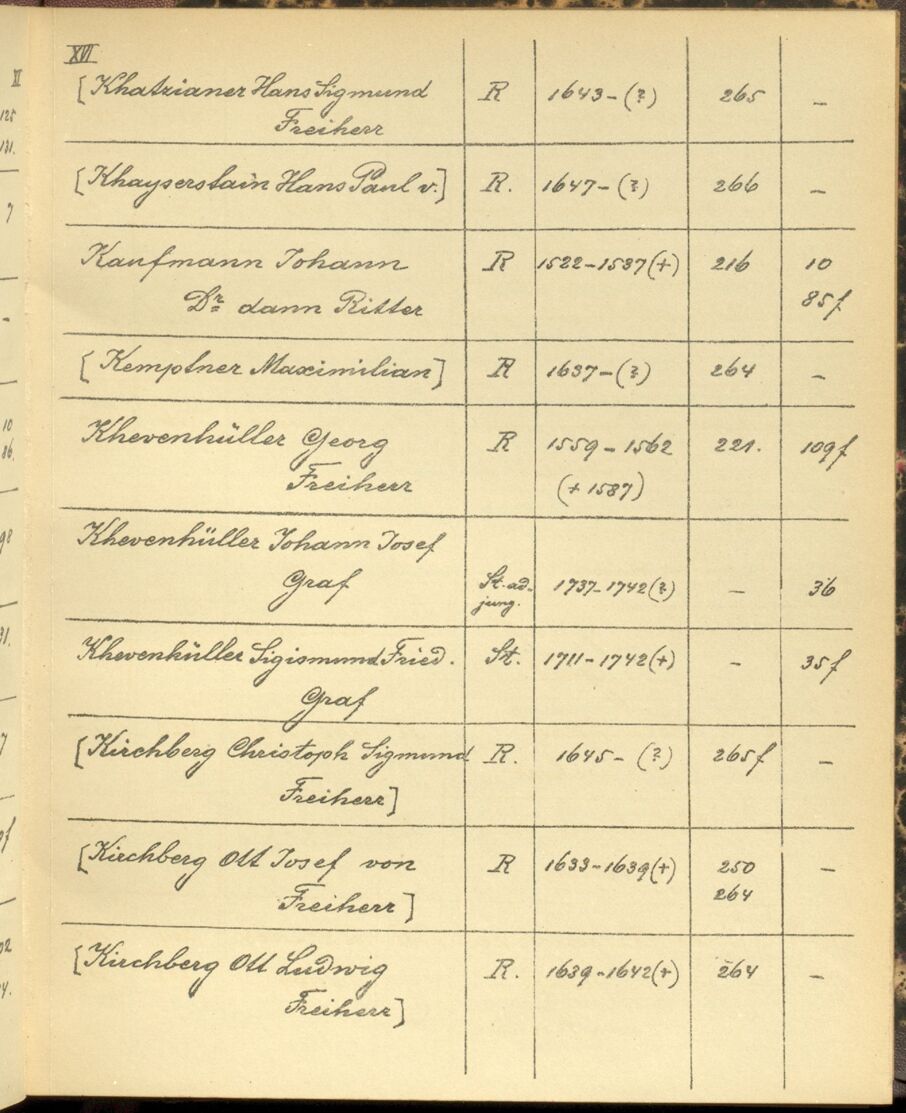 XVI
[Khatzianer Hans Sigmund R 1643-(?) 265 -
Freiherr
[Khayserstain Hans Paul v.] R. 1647-(?) 266 -
Kaufmann Johann R 1522-1537(+) 216 10
Dr. dann Ritter 85f
[Kemptner Maximilian] R 1637-(?) 264 -
Khevenhüller Georg R 1559-1562 221. 109f
Freiherr (+1587)
Khevenhüller Johann Josef
Graf St. ad- 1737-1742(?) - 36
jung.
Khevenhüller Sigismund Fried. St. 1711-1742(+) - 35f
Graf
[Kirchberg Christoph Sigmund R. 1645-(?) 265f -
Freiherr]
[Kirchberg Ott Josef von R 1633-1639(+) 250 -
Freiherr] 264
[Kirchberg Ott Ludwig R. 1639-1642(+) 264 -
Freiherr]